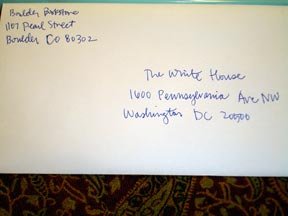 Boulder Bookstore
1107 Pearl Street
Boulder CO 80302
The White House
1600 Pennsylvania Ave NW
Washington DC 20500